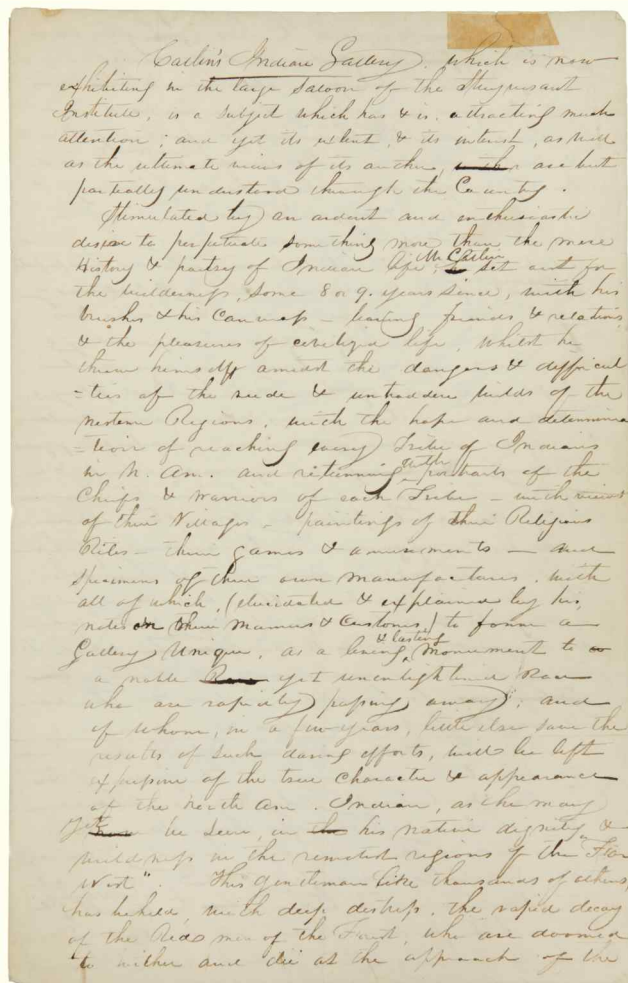 Catlin's Indian Gallery, which is now
exhibiting in the large Saloon of the Stuyvesant
Institute, is a subject which has & is attracting much
attention; and yet its extent, & its interest, as well
as the ultimate views of its author, are but
partially understood through the Country.
Stimulated by an ardent and enthusiastic
desire to perpetuate something more than the mere
History & poetry of Indian life, Mr Catlin set out for
the wilderness, some 8 or 9 years since, with his
brushes & his canvass - leaving friends & relations
& the pleasures of civilized life, whilst he
threw himself amidst the dangers & difficul
=ties of the rude & untrodden wilds of the
Western Regions, with the hope and determina
=tion of reaching every Tribe of Indians
in N. Am. and returning with portraits of the
Chiefs & warriors of each Tribe - with views
of their Villages - paintings of their Religious
Rites - their games & amusements - and
Specimens of their own manufactures, with
all of which, (elucidated & explained by his
notes on their Manners & Customs) to forme a
Gallery Unique, as a living & lasting monument to
a noble yet unenlightened Race
who are rapidly passing away; and
of whom, in a few years, little else save the
results of such daring efforts, will be left
expressive of the true character & appearance
of the North Am. Indian, as he may
yet be seen, in his native dignity &
wildness in the remotest regions of the "Far
West". This gentleman like thousands of others,
has beheld, with deep distress, the rapid decay
of the Red men of the Forest, who are doomed
to wither and die at the approach of the